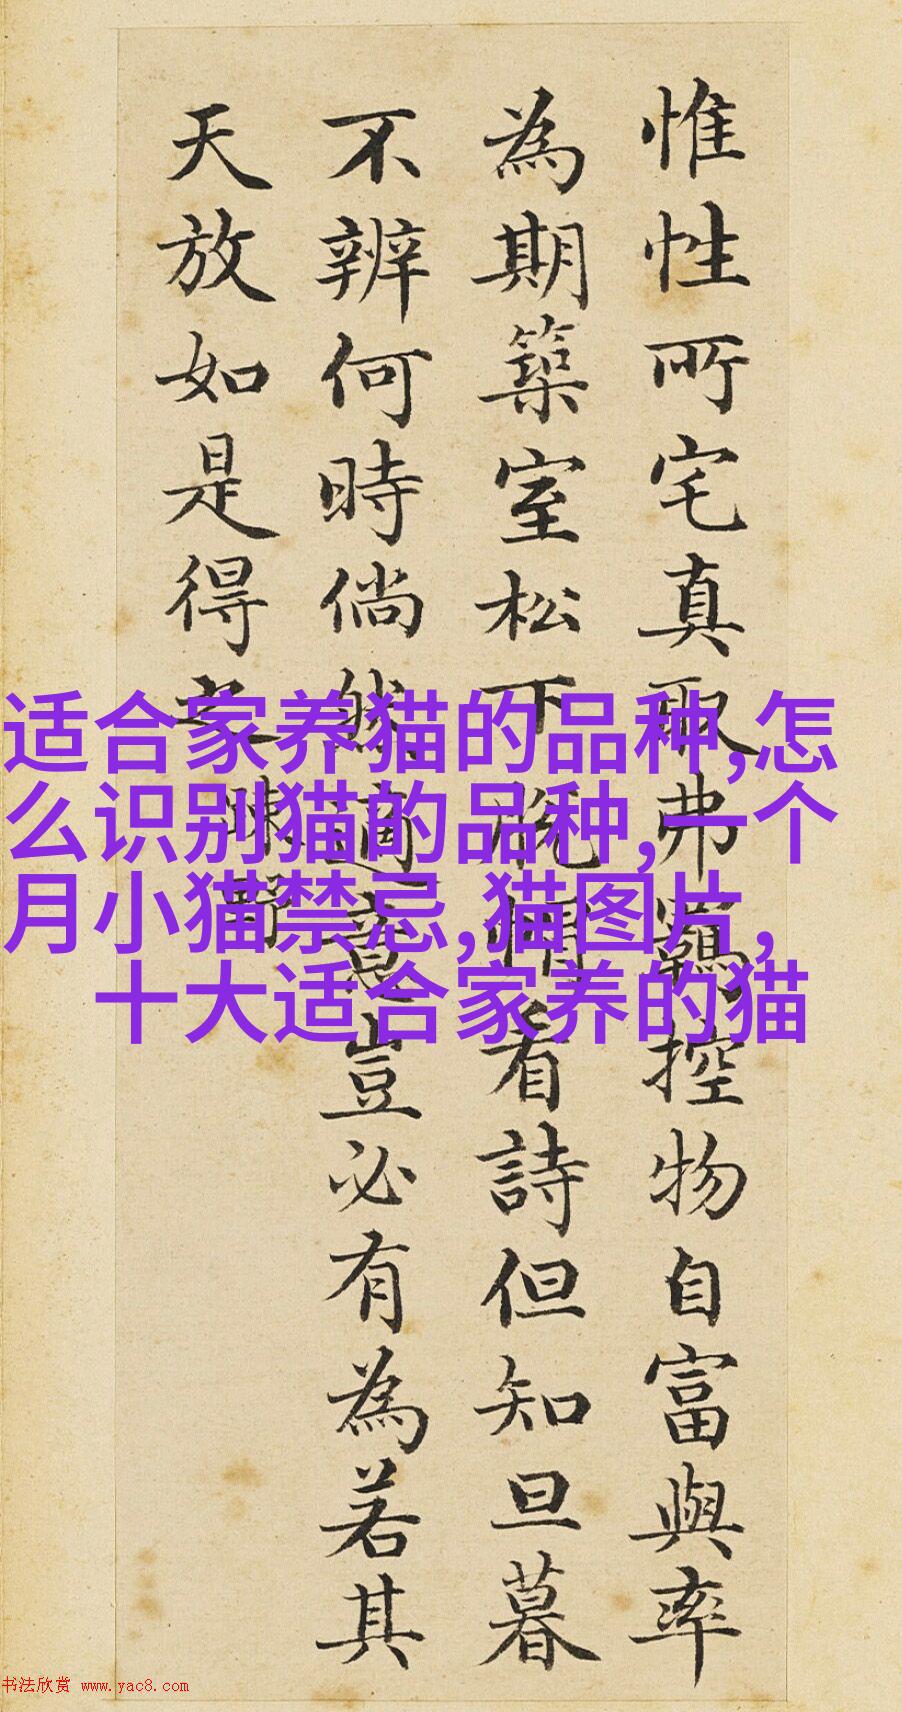 惟性所宅真取弗羈控物自富與率
為期築室松下脱帽看詩但知旦暮
不辨何時倘然適意豈必有為若其
天放如是得之
適合家养猫的品种,怎
么识别猫的品种,一个
月小猫禁忌,猫图片,
十大适合家养的猫
书法欣赏 www.yac8.com